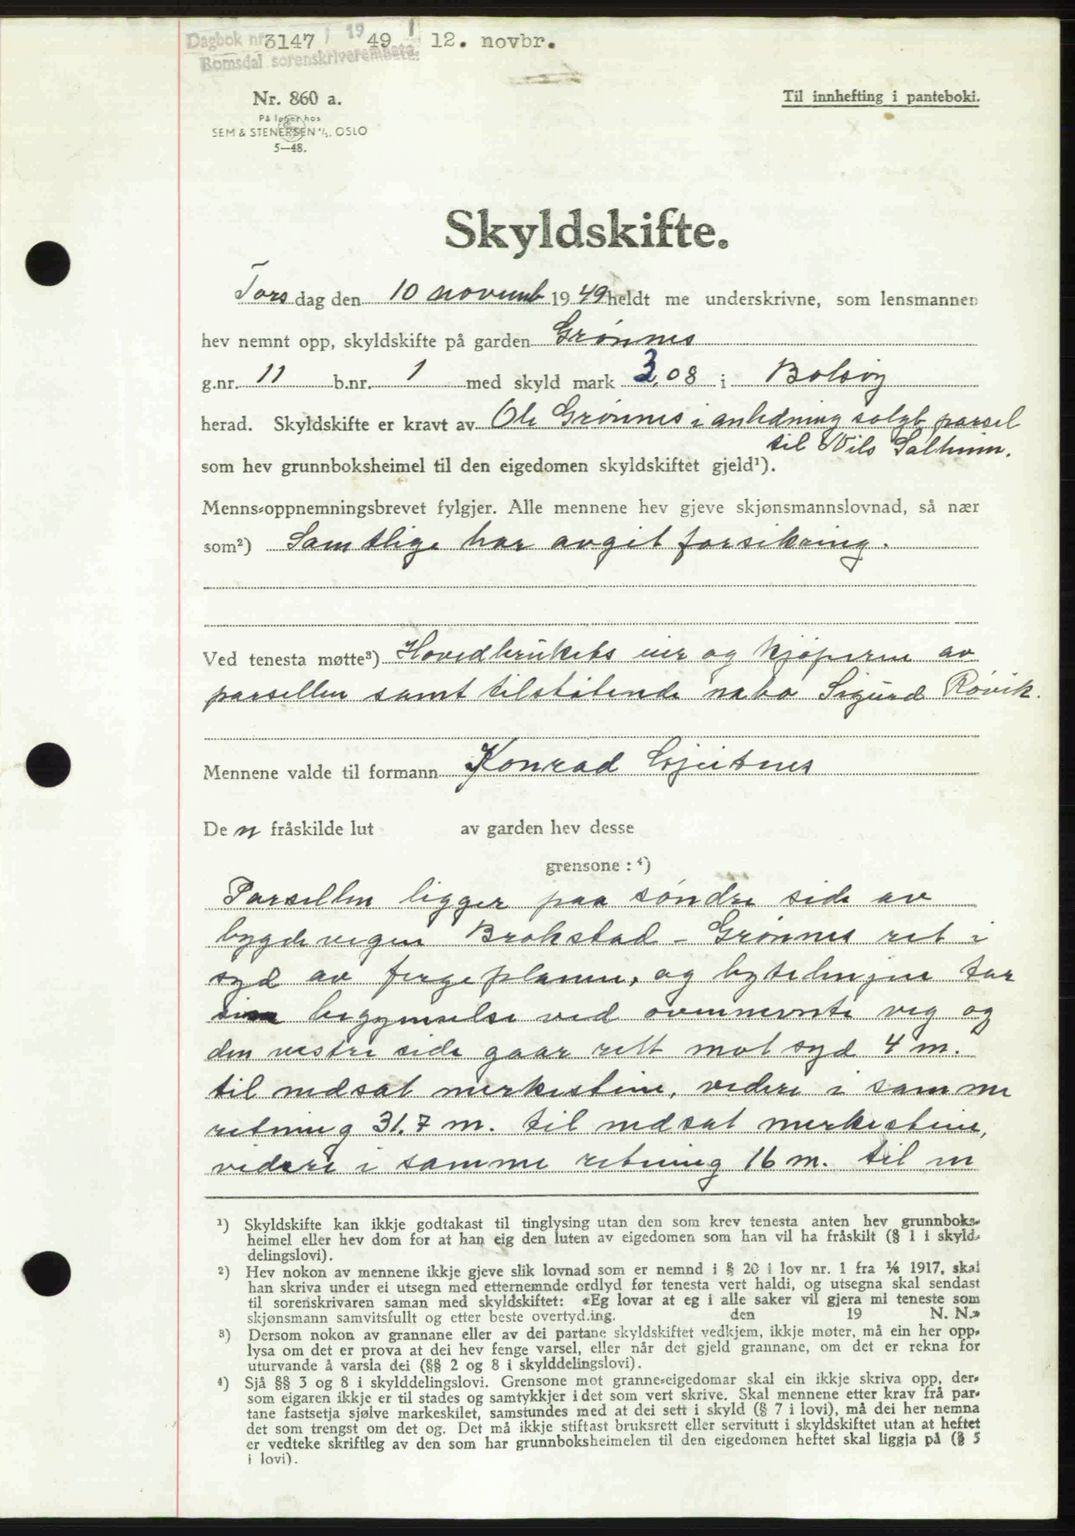 Dagbok nr. 3147 / 1949 12. novbr.
Romsdal sorenskriverembete.
Nr. 860 a.
Til innhefting i panteboki.
På lager hos
SEM & STENERSEN A/S. OSLO
5—48.
Skyldskifte.
Tors dag den 10 novemb 1949 heldt me underskrivne, som lensmannen
hev nemnt opp, skyldskifte på garden Grønnes
g.nr. 11 b.nr. 1 med skyld mark 3,08 i Bolsøy
herad. Skyldskifte er kravt av Ole Grønnes i anledning solgt parsel
til Nils Salthim.
som hev grunnboksheimel til den eigedomen skyldskiftet gjeld¹).
Menns-oppnemningsbrevet fylgjer. Alle mennene hev gjeve skjønsmannslovnad, så nær
som²) Samtlige har avgit forsikring.
Ved tenesta møtte³) Hovedbrukets eier og kjøperen av
parsellen samt tilstøtende nabo Sigurd Røvik.
Mennene valde til formann Konrad Gjeitnes
De n fråskilde lut av garden hev desse
grensone : ⁴)
Parsellen ligger paa søndre side av
bygdevegen Brokstad - Grønnes ret i
syd av fergeplanen, og bytelinjen tar
sin begynnelse ved ovennevnte veg og
den vestre side gaar rett mot syd 4 m.
til nedsat merkestein, videre i samme
retning 31.7 m. til nedsat merkestein,
videre i samme retning 16 m. til n
¹) Skyldskifte kan ikkje godtakast til tinglysing utan den som krev tenesta anten hev grunnboks-
heimel eller hev dom for at han eig den luten av eigedomen som han vil ha fråskilt (§ 1 i skyld-
delingslovi).
²) Hev nokon av mennene ikkje gjeve slik lovnad som er nemnd i § 20 i lov nr. 1 fra 1/6 1917, skal
han skriva under ei utsegn med etternemnde ordlyd før tenesta vert haldi, og utsegna skal sendast
til sorenskrivaren saman med skyldskiftet: «Eg lovar at eg i alle saker vil gjera mi teneste som
skjønsmann samvitsfullt og etter beste overtyding. den 19 N. N.»
³) Dersom nokon av grannane eller av dei partane skyldskiftet vedkjem, ikkje møter, må ein her opp-
lysa om det er prova at dei hev fenge varsel, eller når det gjeld grannane, om det er rekna for
uturvande å varsla dei (§§ 2 og 8 i skylddelingslovi).
⁴) Sjå §§ 3 og 8 i skylddelingslovi. Grensone mot granne-eigedomar skal ein ikkje skriva opp, der-
som eigaren ikkje er til stades og samtykkjer i det som vert skrive. Skal mennene etter krav frå par-
tane fastsetja sjølve markeskilet, samstundes med at dei sett i skyld (§ 7 i lovi), må dei her nemna
det som trengst om det og. Det må ikkje stiftast bruksrett eller servitutt i skyldskiftet utan at heftet
er vedteke skriftleg av den som har grunnboksheimelen til den eigedomen heftet skal liggja på (§ 5
i lovi).